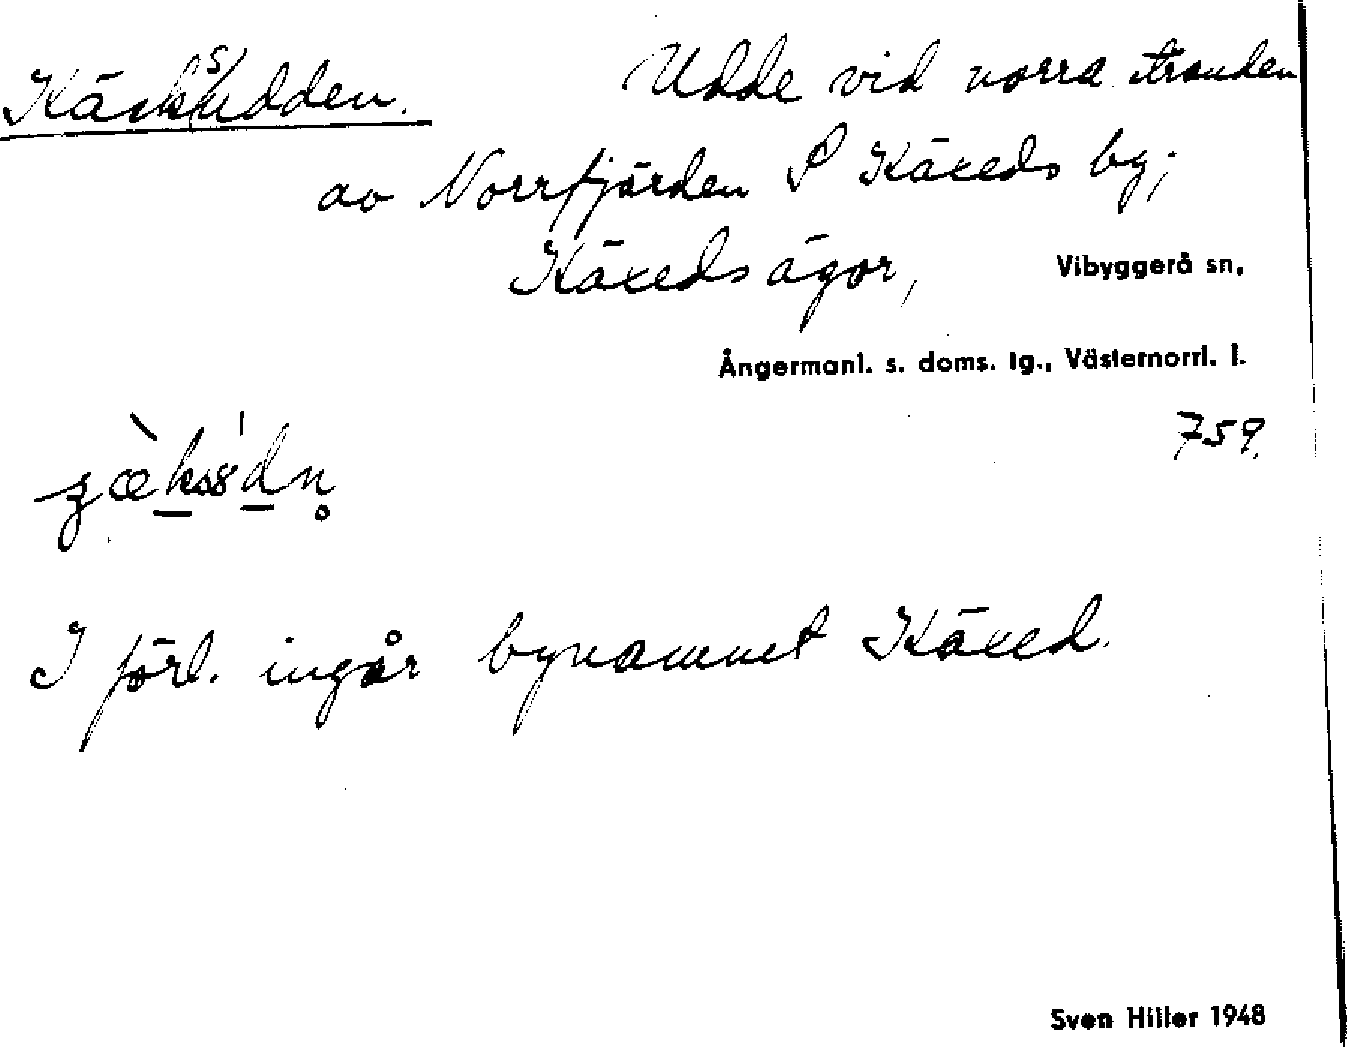 Käcksudden. Udde vid norra stranden
av Norrfjärden S Käxeds by;
Käxeds ägor, Vibyggerå sn,
Ångermanl. s. doms. tg., Västernorrl. l.
759.
I förl. ingår bynamnet Käxed.
Sven Hiller 1948